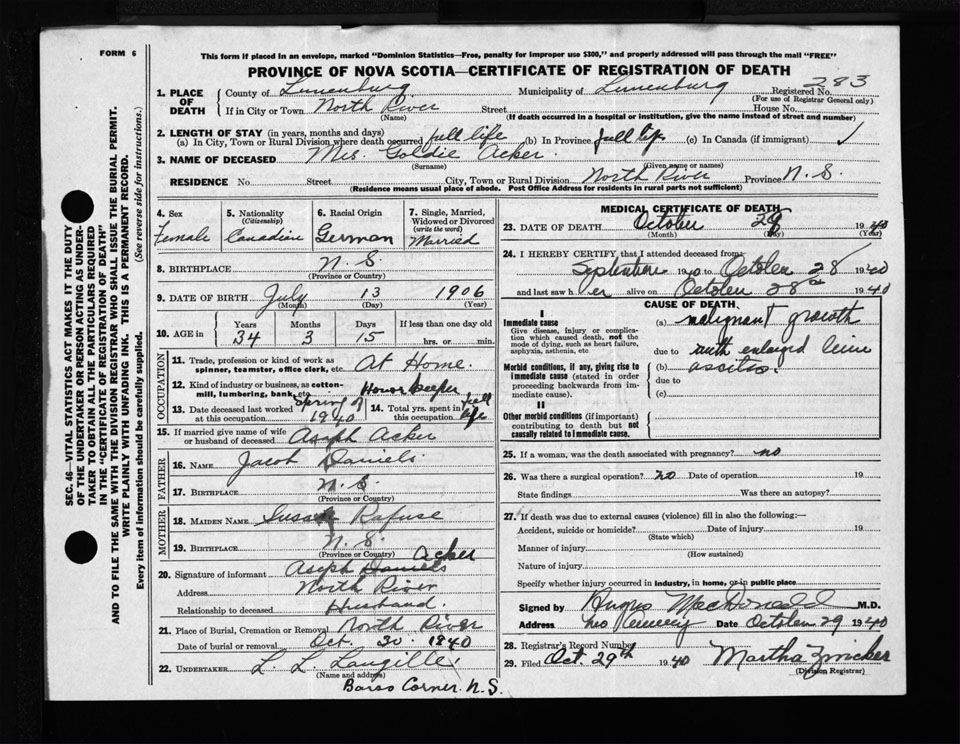 FORM 6
This form if placed in an envelope, marked "Dominion Statistics—Free, penalty for improper use $300," and properly addressed will pass through the mail "FREE"
PROVINCE OF NOVA SCOTIA—CERTIFICATE OF REGISTRATION OF DEATH
1. PLACE OF DEATH
County of Lunenburg Municipality of Lunenburg Registered No. 283
(For use of Registrar General only)
If in City or Town North River Street House No.
(Name) (If death occurred in a hospital or institution, give the name instead of street and number)
2. LENGTH OF STAY (in years, months and days)
(a) In City, Town or Rural Division where death occurred full life (b) In Province full life (c) In Canada (if immigrant) ✓
3. NAME OF DECEASED Mrs. Goldie Acker
(Surname) (Given name or names)
RESIDENCE No. Street City, Town or Rural Division North River Province N.S.
(Residence means usual place of abode. Post Office Address for residents in rural parts not sufficient)
SEC. 46—VITAL STATISTICS ACT MAKES IT THE DUTY
OF THE UNDERTAKER OR PERSON ACTING AS UNDER-
TAKER TO OBTAIN ALL THE PARTICULARS REQUIRED
IN THE "CERTIFICATE OF REGISTRATION OF DEATH"
AND TO FILE THE SAME WITH THE DIVISION REGISTRAR WHO SHALL ISSUE THE BURIAL PERMIT.
WRITE PLAINLY WITH UNFADING INK. THIS IS A PERMANENT RECORD.
Every item of information should be carefully supplied. (See reverse side for instructions.)
4. Sex
Female
5. Nationality
(Citizenship)
Canadian
6. Racial Origin
German
7. Single, Married, Widowed or Divorced
(write the word)
Married
8. BIRTHPLACE N.S.
(Province or Country)
9. DATE OF BIRTH July 13 1906
(Month) (Day) (Year)
10. AGE in
Years Months Days If less than one day old
34 3 15 hrs. or min.
OCCUPATION
11. Trade, profession or kind of work as
spinner, teamster, office clerk, etc. At Home.
12. Kind of industry or business, as cotton-
mill, lumbering, bank, etc. House Keeper
13. Date deceased last worked
at this occupation Spring of 1940
14. Total yrs. spent in
this occupation full life
15. If married give name of wife
or husband of deceased Aseph Acker
FATHER
16. NAME Jacob Daniels.
17. BIRTHPLACE N.S.
(Province or Country)
MOTHER
18. MAIDEN NAME Susan Rafuse
19. BIRTHPLACE N.S.
(Province or Country)
Acker
20. Signature of informant Aseph Daniels
Address North River
Relationship to deceased Husband.
21. Place of Burial, Cremation or Removal North River
Date of burial or removal Oct. 30. 1940
22. UNDERTAKER L. L. Langille.
(Name and address)
Barss Corner. N.S.
MEDICAL CERTIFICATE OF DEATH
23. DATE OF DEATH October 28 1940
(Month) (Day) (Year)
24. I HEREBY CERTIFY, that I attended deceased from
September 1940 to October 28 1940
and last saw her alive on October 28 1940
CAUSE OF DEATH
I
Immediate cause
Give disease, injury or complica-
tion which caused death, not the
mode of dying, such as heart failure,
asphyxia, asthenia, etc
(a) malignant growth
due to with enlarged liver
Morbid conditions, if any, giving rise to
immediate cause (stated in order
proceeding backwards from im-
mediate cause).
(b) ascites.
due to
(c)
II
Other morbid conditions (if important)
contributing to death but not
causally related to immediate cause.
25. If a woman, was the death associated with pregnancy? no
26. Was there a surgical operation? no Date of operation 19
State findings Was there an autopsy?
27. If death was due to external causes (violence) fill in also the following:—
Accident, suicide or homicide? Date of injury 19
(State which)
Manner of injury
(How sustained)
Nature of injury
Specify whether injury occurred in industry, in home, or in public place
Signed by MacDonald M.D.
Address Date October 29 1940
28. Registrar's Record Number
29. Filed Oct. 29th 1940 Martha Zwicker
(Division Registrar)